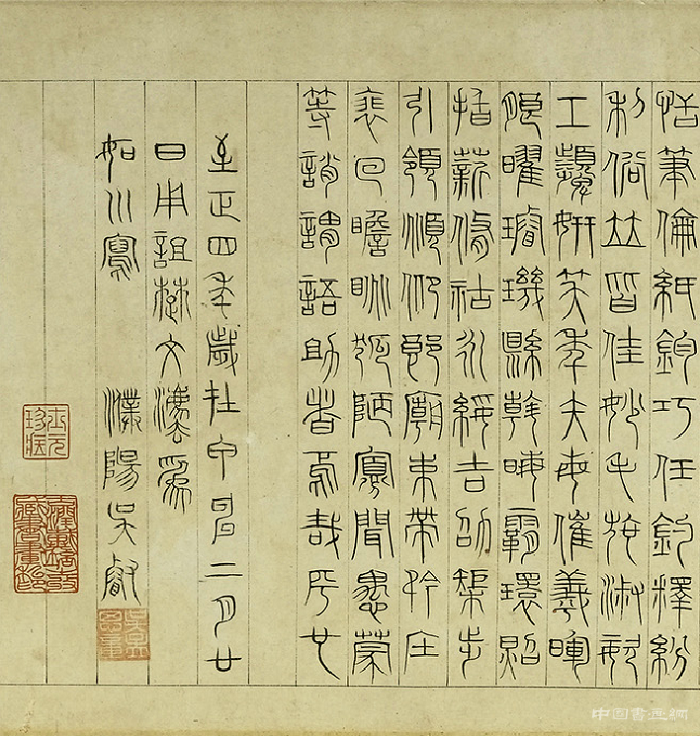 恬筆倫紙鈞巧任釣釋紛
利俗竝皆佳妙毛施淑姿
工顰妍笑年矢每催羲暉
朖曜璿璣縣斡晦霸環照
指薪修祜永綏吉劭矩步
引領頫仰郎廟束帶矜莊
裵回瞻眺孤陋寡聞愚蒙
等誚謂語助者焉哉乎也
至正四年歲在甲申二月廿
日用詛楚文灋為
如川寫 濮陽吳睿
中国書画網